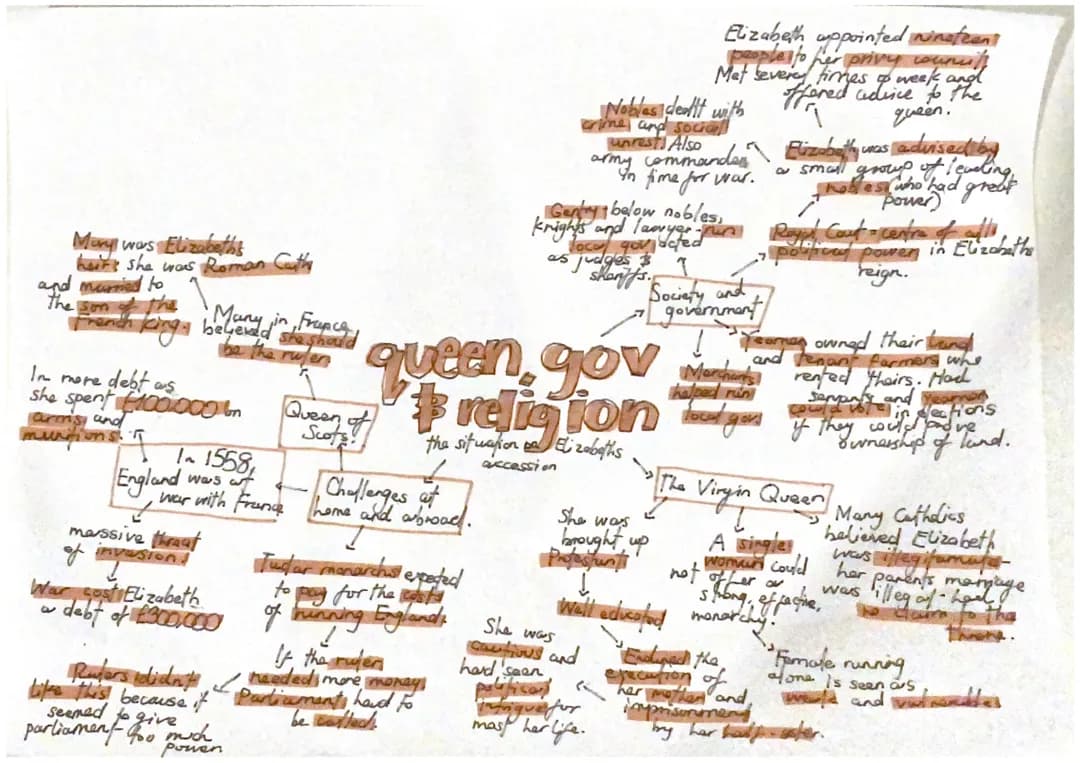 queen, gov
& religion
the situation on Elizabeths
accession
Society and
government
Royal Court = centre of all
political power in Elizabeths
reign.
Elizabeth was advised by
a small group of leading
nobles (who had great
power)
Elizabeth appointed nineteen
people to her privy council
Met several times a week and
offered advice to the
queen.
Nobles dealt with
crime and social
unrest. Also
army commanders
in time for war.
Gentry - below nobles,
knights and lawyer - run
local gov, acted
as judges &
sheriffs.
Merchants
helped run
local gov
Yeoman owned their land
and tenant farmers who
rented theirs. Had
servants and yeoman
could vote in elections
if they could prove
ownership of land.
The Virgin Queen
She was
brought up
Protestant
Well educated
Endured the
execution of
her mother and
imprisonment
by her half-sister.
She was
cautious and
had seen
political
intrigue for
most her life.
A single
woman could
not offer a
strong, effective,
monarchy.
Female running
alone is seen as
weak and vulnerable
Many Catholics
believed Elizabeth
was illegitimate -
her parents marriage
was illegal - had
no claim to the
throne.
Challenges at
home and abroad.
Queen of
Scots.
Many in France
believed she should
be the ruler
Mary was Elizabeths
heir: she was Roman Cath
and married to
the son of the
French king.
In 1558,
England was at
war with France
In more debt as
she spent £100,000 on
arms and
munitions.
massive threat
of invasion.
War cost Elizabeth
a debt of £300,000
Tudor monarchs expected
to pay for the costs
of running England.
If the ruler
needed more money
Parliament had to
be called.
Rulers didn't
like this because it
seemed to give
parliament too much
power